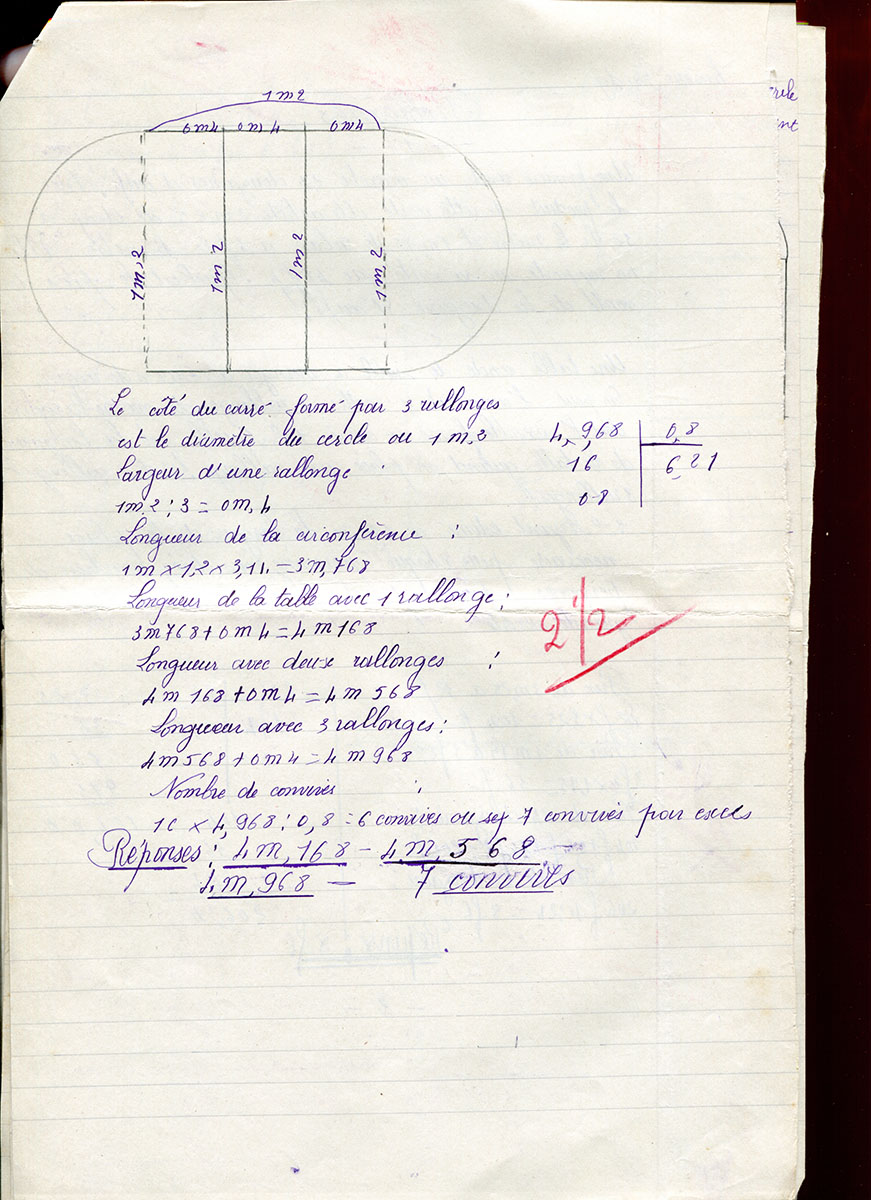 1m2
0m4 0m4 0m4
1m,2 1m2 1m2 1m2
Le côté du carré formé par 3 rallonges
est le diamètre du cercle ou 1m,2
Largeur d'une rallonge
1m.2 : 3 = 0m,4
Longueur de la circonférence :
1m × 1,2 × 3,14 = 3m,768
Longueur de la table avec 1 rallonge :
3m768 + 0m4 = 4m168
Longueur avec deux rallonges :
4m168 + 0m4 = 4m568
Longueur avec 3 rallonges :
4m568 + 0m4 = 4m968
Nombre de convives :
1C × 4,968 : 0,8 = 6 convives ou 7 convives par excès
Réponses : 4m,168 - 4m,568 -
4m,968 - 7 convives
4,968 0,8
16 6,21
08
2 1/2